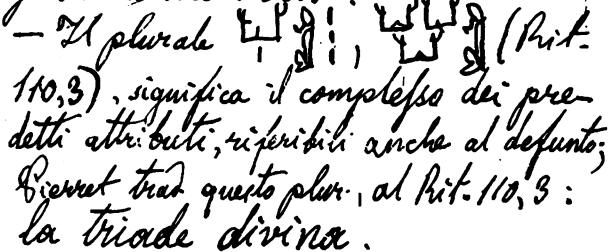 — Il plurale 𓂓𓏤 , 𓂓𓂓𓂓 (Rit.
110,3), significa il complesso dei pre-
detti attributi, riferibili anche al defunto;
Pierret trad questo plur., al Rit. 110, 3:
la triade divina.